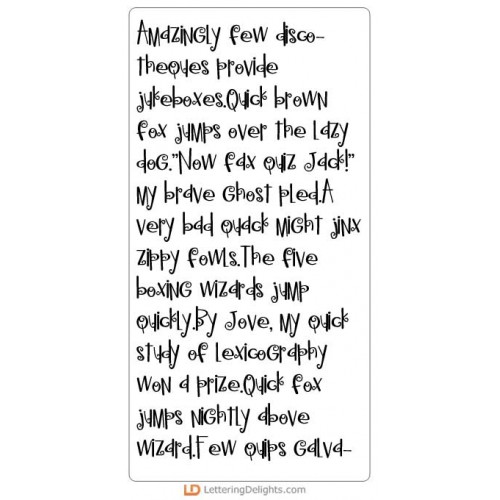 Amazingly few disco-
theques provide
jukeboxes.Quick brown
fox jumps over the lazy
dog."Now fax quiz Jack!"
My brave ghost pled.A
very bad quack might jinx
zippy fowls.The five
boxing wizards jump
quickly.By Jove, my quick
study of lexicography
won a prize.Quick fox
jumps nightly above
wizard.Few quips galva-
LD LetteringDelights.com